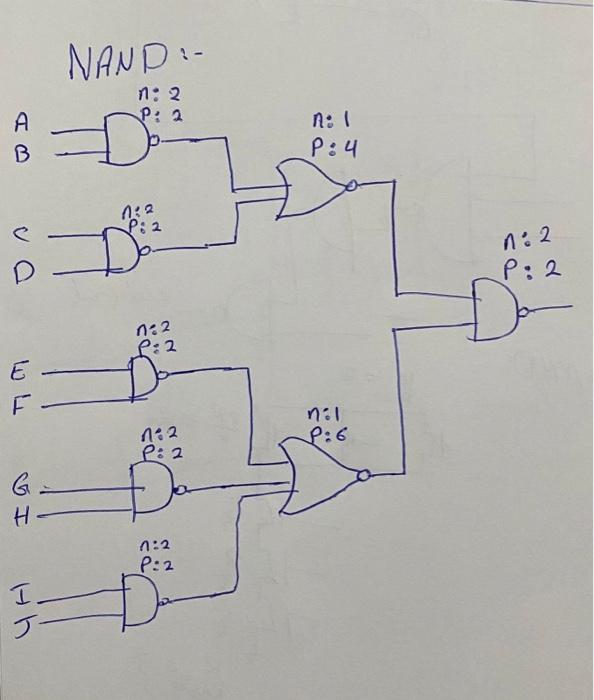 NAND :-
n: 2
P: 2
A
B
n: 1
P: 4
n: 2
P: 2
C
D
n: 2
P: 2
n: 2
P: 2
E
F
n: 1
P: 6
n: 2
P: 2
G
H
n: 2
P: 2
I
J